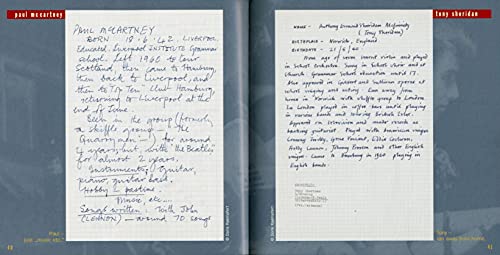 paul mccartney
PAUL McCARTNEY
BORN 18.6.42. LIVERPOOL.
Educated. Liverpool INSTITUTE Grammar
school. Left 1960 to tour
Scotland, then came to Hamburg,
then back to Liverpool, and
then to Top Ten Club Hamburg,
returning to Liverpool at the
end of June.
Been in the group (formerly
a skiffle group — The
Quarrymen — for around
years but, with the "Beatles"
for almost 2 years.
Instruments: Guitar,
piano, guitar bass.
Hobby & pastime
Music, etc...
Songs written: With John
(LENNON) — around 70 songs
Paul –
© Doris
tony sheridan
NAME – Anthony Esmond Sheridan McGinnity
(Tony Sheridan)
BIRTHPLACE – Norwich, England
BIRTHDATE – 21/5/40
From age of seven learnt violin and played
in School Orchestra. Sang in School Choir and at
Church. Grammar School education until 17.
Also appeared in Gilbert and Sullivan operas at
school singing and acting. Ran away from
home in Norwich with skiffle group to London.
In London played in coffee bars until playing
in various bands and touring British Isles.
Appeared on television and made records as
backing guitarist. Played with American singers
Conway Twitty, Gene Vincent, Eddie Cochran,
and other English
singers. Came to Hamburg in 1960 playing in
English bands.
Tony –
© Doris